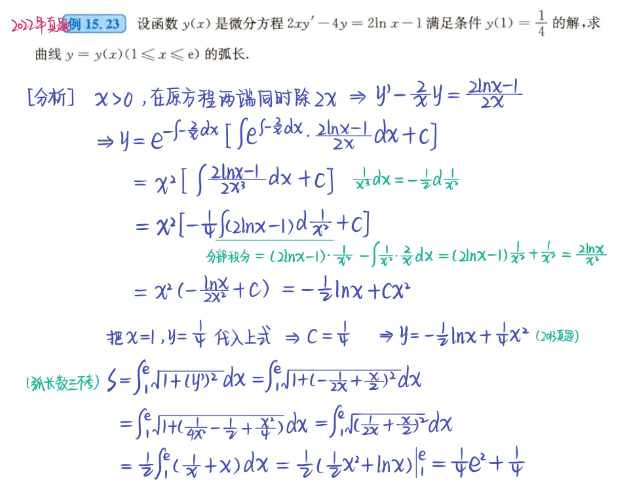 2022年真题 例 15.23 设函数 y(x) 是微分方程 2xy′－4y＝2ln x－1 满足条件 y(1)＝1/4 的解,求
曲线 y＝y(x)(1≤x≤e) 的弧长.
[分析] x>0 ,在原方程两端同时除2x ⇒ y'-2/x y=(2lnx-1)/(2x)
⇒ y=e^(-∫-2/x dx) [∫e^(∫-2/x dx)·(2lnx-1)/(2x) dx+C]
= x²[∫(2lnx-1)/(2x³) dx+C] 1/x³ dx=-1/2 d 1/x²
= x²[-1/4∫(2lnx-1)d 1/x²+C]
分部积分=(2lnx-1)·1/x²-∫1/x²·2/x dx=(2lnx-1)1/x²+1/x²=2lnx/x²
= x²(-lnx/(2x²)+C) =-1/2 lnx+Cx²
把x=1,y=1/4 代入上式 ⇒ C=1/4 ⇒ y=-1/2 lnx+1/4 x²
(弧长数三不考) S=∫₁ᵉ√(1+(y')²) dx=∫₁ᵉ√(1+(-1/(2x)+x/2)²) dx
=∫₁ᵉ√(1+(1/(4x²)-1/2+x²/4)) dx=∫₁ᵉ√((1/(2x)+x/2)²) dx
=1/2∫₁ᵉ(1/x+x)dx=1/2(1/2 x²+lnx)|₁ᵉ=1/4 e²+1/4